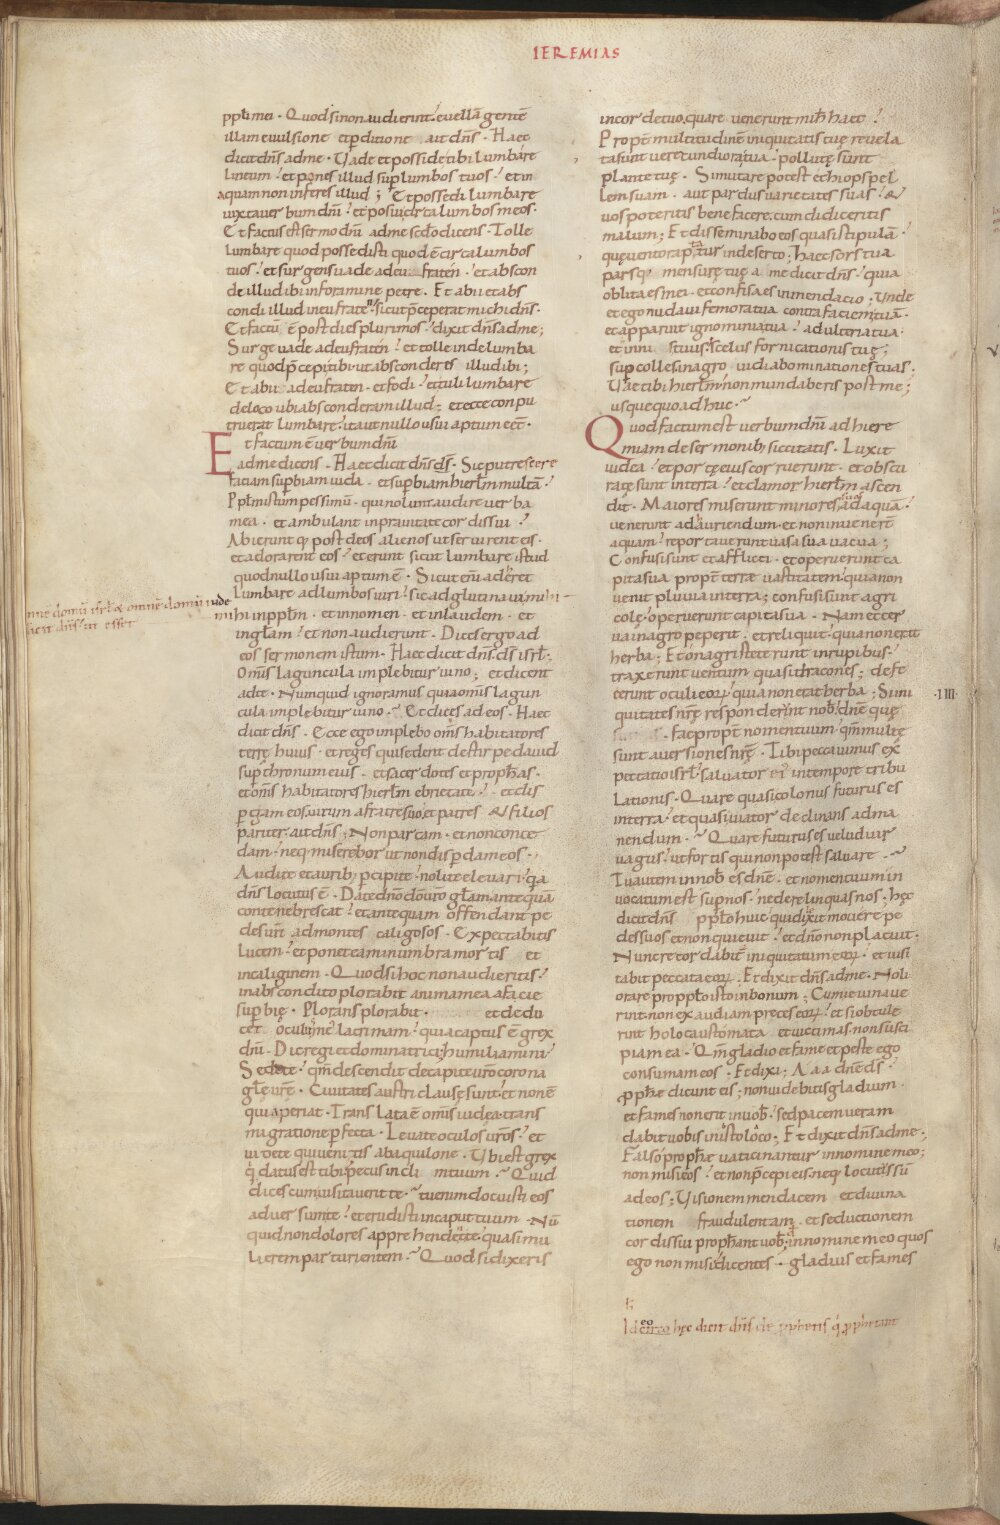 IEREMIAS
pp̄li mei · Quod si non audierint · euellā gentē
illam euulsione et p̄ditione ait dn̄s · Haec
dicit dn̄s ad me · Uade et posside tibi lumbare
lineum · et pones illud sup̄ lumbos tuos · et in
aquam non inferes illud ; Et possedi lumbare
iuxta uerbum dn̄i · et posui circa lumbos meos ·
Et factus est sermo dn̄i ad me sc̄do dicens · Tolle
lumbare quod possedisti quod ē circa lumbos
tuos · et surgens uade ad eufraten · et abscon
de illud ibi in foramine petre · Et abii et abs
condi illud in eufraten · sicut p̄ceperat michi dn̄s ·
Et factū ē post dies plurimos · dixit dn̄s ad me ;
Surge uade ad eufraten · et tolle inde lumba
re quod p̄cepi tibi ut absconderes illud ibi ;
Et abii ad eufraten · et fodi · et tuli lumbare
de loco ubi absconderam illud ; et ecce conpu
truerat lumbare · ita ut nullo usui aptum eēt ·
Et factum ē uerbum dn̄i
ad me dicens · Haec dicit dn̄s d̄s · Sic putrescere
faciam sup̄biam iuda · et sup̄biam hierl̄m multā ·
Pp̄lm istum pessimū · qui nolunt audire uerba
mea · et ambulant in prauitate cordis sui ·
Abierunt q; post deos alienos ut seruirent eis ·
et adorarent eos · et erunt sicut lumbare istud
quod nullo usui aptum ē · Sicut enī adheret
lumbare ad lumbos uiri · sic adglutinaui mihi
omnē domū isrl̄ & omnē domū iude
dicit dn̄s · ut esset
mihi in pp̄lm · et in nomen · et in laudem · et
in gl̄am · et non audierunt · Dices ergo ad
eos sermonem istum · Haec dicit dn̄s d̄s isrl̄ ·
Omīs laguncula implebitur uino ; et dicent
ad te · Numquid ignoramus quia omīs lagun
cula implebitur uino · Et dices ad eos · Haec
dicit dn̄s · Ecce ego implebo om̄s habitatores
terrę huius · et reges qui sedent de stirpe dauid
sup̄ thronum eius · et sacerdotes et proph̄as ·
et om̄s habitatores hierl̄m ebrietate · et dis
p̄gam eos uirum a fratre suo et patres & filios
pariter · ait dn̄s ; Non parcam · et non conce
dam · neq; miserebor ut non disp̄dam eos ·
Audite et aurib; p̄cipite · nolite eleuari · q̄a
dn̄s locutus ē · Date dn̄o dō ur̄o gl̄am antequā
contenebrescat · et antequam offendant pe
des ur̄i ad montes caligosos · Expectabitis
lucem · et ponet eam in umbra mortis et
in caliginem · Quod si hoc non audieritis ·
in abscondito plorabit anima mea a facie
sup̄bię · Plorans plorabit · et dedu
cet oculus meus lacrimam · quia captus ē grex
dn̄i · Dic regi et dominatrici ; humiliamini ·
Sedete · qm̄ descendit de capite ur̄o corona
gl̄ę ur̄ę · Ciuitates austri clausę sunt · et non ē
qui aperiat · Translata ē omīs iudęa trans
migratione p̄fecta · Leuate oculos ur̄os · et
uidete qui uenitis ab aquilone · Ubi est grex
q̇ datus est tibi · pecus incli tum tuum · Quid
dices cum uisitauerit te · tu enim docuisti eos
aduersum te · et erudisti in caput tuum · Nū
quid non dolores apprehendent te · quasi mu
lierem parturientem · Quod si dixeris
in corde tuo · quare uenerunt mihi haec ·
Propt̄ multitudinē iniquitatis tuę reuela
ta sunt uerecundiora tua · pollutę sunt
plantę tuę · Si mutare potest ethiops pel
lem suam · aut pardus uarietates suas · &
uos poteritis bene facere · cum didiceritis
malum ; Et disseminabo eos quasi stipulā ·
quę uento raptatur in deserto ; Haec sors tua
parsq; mensurę tuę a me dicit dn̄s · quia
oblita es mei · et confisa es in mendacio ; Unde
et ego nudaui femora tua contra faciem tuā ·
et apparuit ignominia tua · adulteria tua ·
et inni tus tuus · scelus fornicationis tuę ;
sup̄ colles in agro uidi abominationes tuas ;
Uae tibi hierl̄m non mundaberis post me ;
usquequo adhuc ·
Quod factum est uerbum dn̄i ad hiere
miam de sermonib; siccitatis · Luxit
iudea · et portę eius corruerunt · et obscu
ratę sunt in terra · et clamor hierl̄m ascen
dit · Maiores miserunt minores suos ad aquā ·
uenerunt ad auriendum · et non inuenert̄
aquam · reportauerunt uasa sua uacua ;
Confusi sunt et afflicti · et operuerunt ca
pita sua propt̄ terrae uastitatem · quia non
uenit pluuia in terra ; confusi sunt agri
colę · operuerunt capita sua · Nam et cer
ua in agro peperit · et reliquit · quia non erat
herba ; Et onagri steterunt in rupibus ·
traxerunt uentum quasi dracones ; defe
cerunt oculi eoꝝ · quia non erat herba ; Si ini
· III ·
quitates nr̄ę responderint nob̄ · dn̄e quę
· fac propt̄ nomen tuum · qm̄ multę
sunt auersiones nr̄ę · Tibi peccauimus ex
pectatio isrl̄ · saluator ei' in tempore tribu
lationis · Quare quasi colonus futurus es
in terra · et quasi uiator declinans ad ma
nendum · Quare futurus es uelud uir
uagus · ut fortis qui non potest saluare ·
Tu autem in nob̄ es dn̄e · et nomen tuum in
uocatum est sup̄ nos · ne derelinquas nos · hęc
dicit dn̄s pp̄lo huic qui dilexit mouere pe
des suos et non quieuit · et dn̄o non placuit ·
Nunc recordabit̄ iniquitatum eoꝝ · et uisi
tabit peccata eoꝝ ; Et dixit dn̄s ad me · Noli
orare pro pp̄lo isto in bonum ; Cum ieiunaue
rint · non exaudiam preces eoꝝ · et si obtule
rint holocaustomata et uictimas · non susci
piam ea · Qm̄ gladio et fame et peste ego
consumam eos ; Et dixi ; A a a dn̄e d̄s ·
proph̄ae dicunt eis ; non uidebitis gladium ·
et fames non erit in uob̄ · sed pacem ueram
dabit uobis in isto loco ; Et dixit dn̄s ad me ·
Falso proph̄ae uaticinantur in nomine meo ;
non misi eos · et non p̄cepi eis · neq; locutus sū
ad eos ; Uisionem mendacem et diuina
tionem fraudulentam · et seductionem
cordis sui proph̄ant uob̄ ; in nomine meo quos
ego non misi dicentes · gladius et fames
Ideo hęc dicit dn̄s de prophetis q̇ proph̄tant